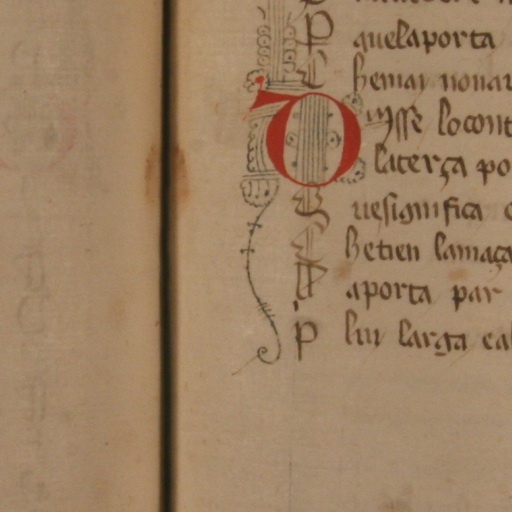 P auelaporta
E hemai nonar
Disse lo cont
laterça po
E uesignifica
E hetien lamaça
D aporta par
P lui larga ca